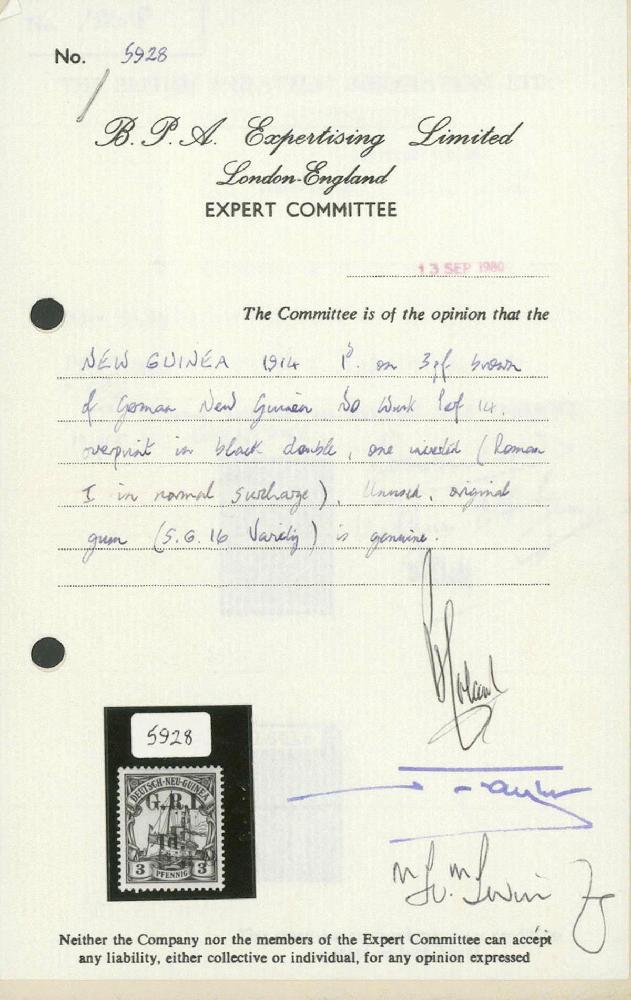 No. 5928
B. P. A. Expertising Limited
London-England
EXPERT COMMITTEE
13 SEP 1980
The Committee is of the opinion that the
NEW GUINEA 1914 1d. on 3pf brown
of German New Guinea No Wmk Perf 14.
overprint in black double, one inverted (Roman
I in normal surcharge), Unused, original
gum (S.G. 16 Variety) is genuine.
5928
DEUTSCH-NEU-GUINEA
G.R.I.
1d.
3 PFENNIG 3
Neither the Company nor the members of the Expert Committee can accept
any liability, either collective or individual, for any opinion expressed